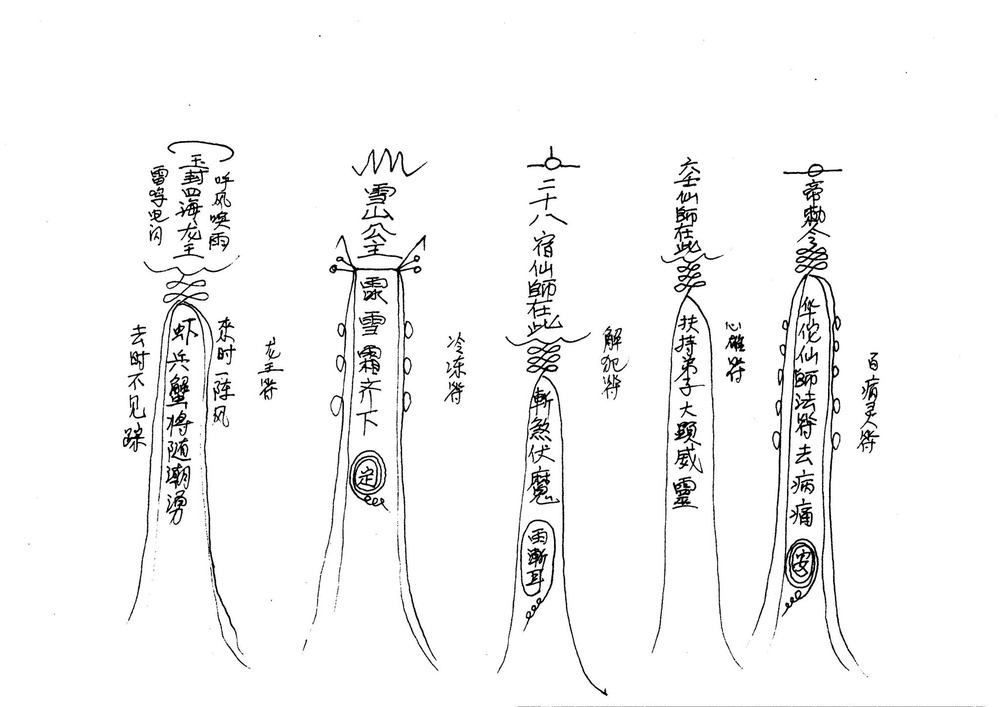 帝勅令
华佗仙師法符去病痛
安
百病灵符
六壬仙師在此
扶持弟子大顕威靈
心雄符
二十八宿仙師在此
斬煞伏魔
雨漸耳
解犯符
雪山公主
雪霜齐下
定
冷冻符
玉封四海龙王
呼风唤雨
雷鸣电闪
虾兵蟹将随潮湧
來时一阵风
去时不见踪
龙王符